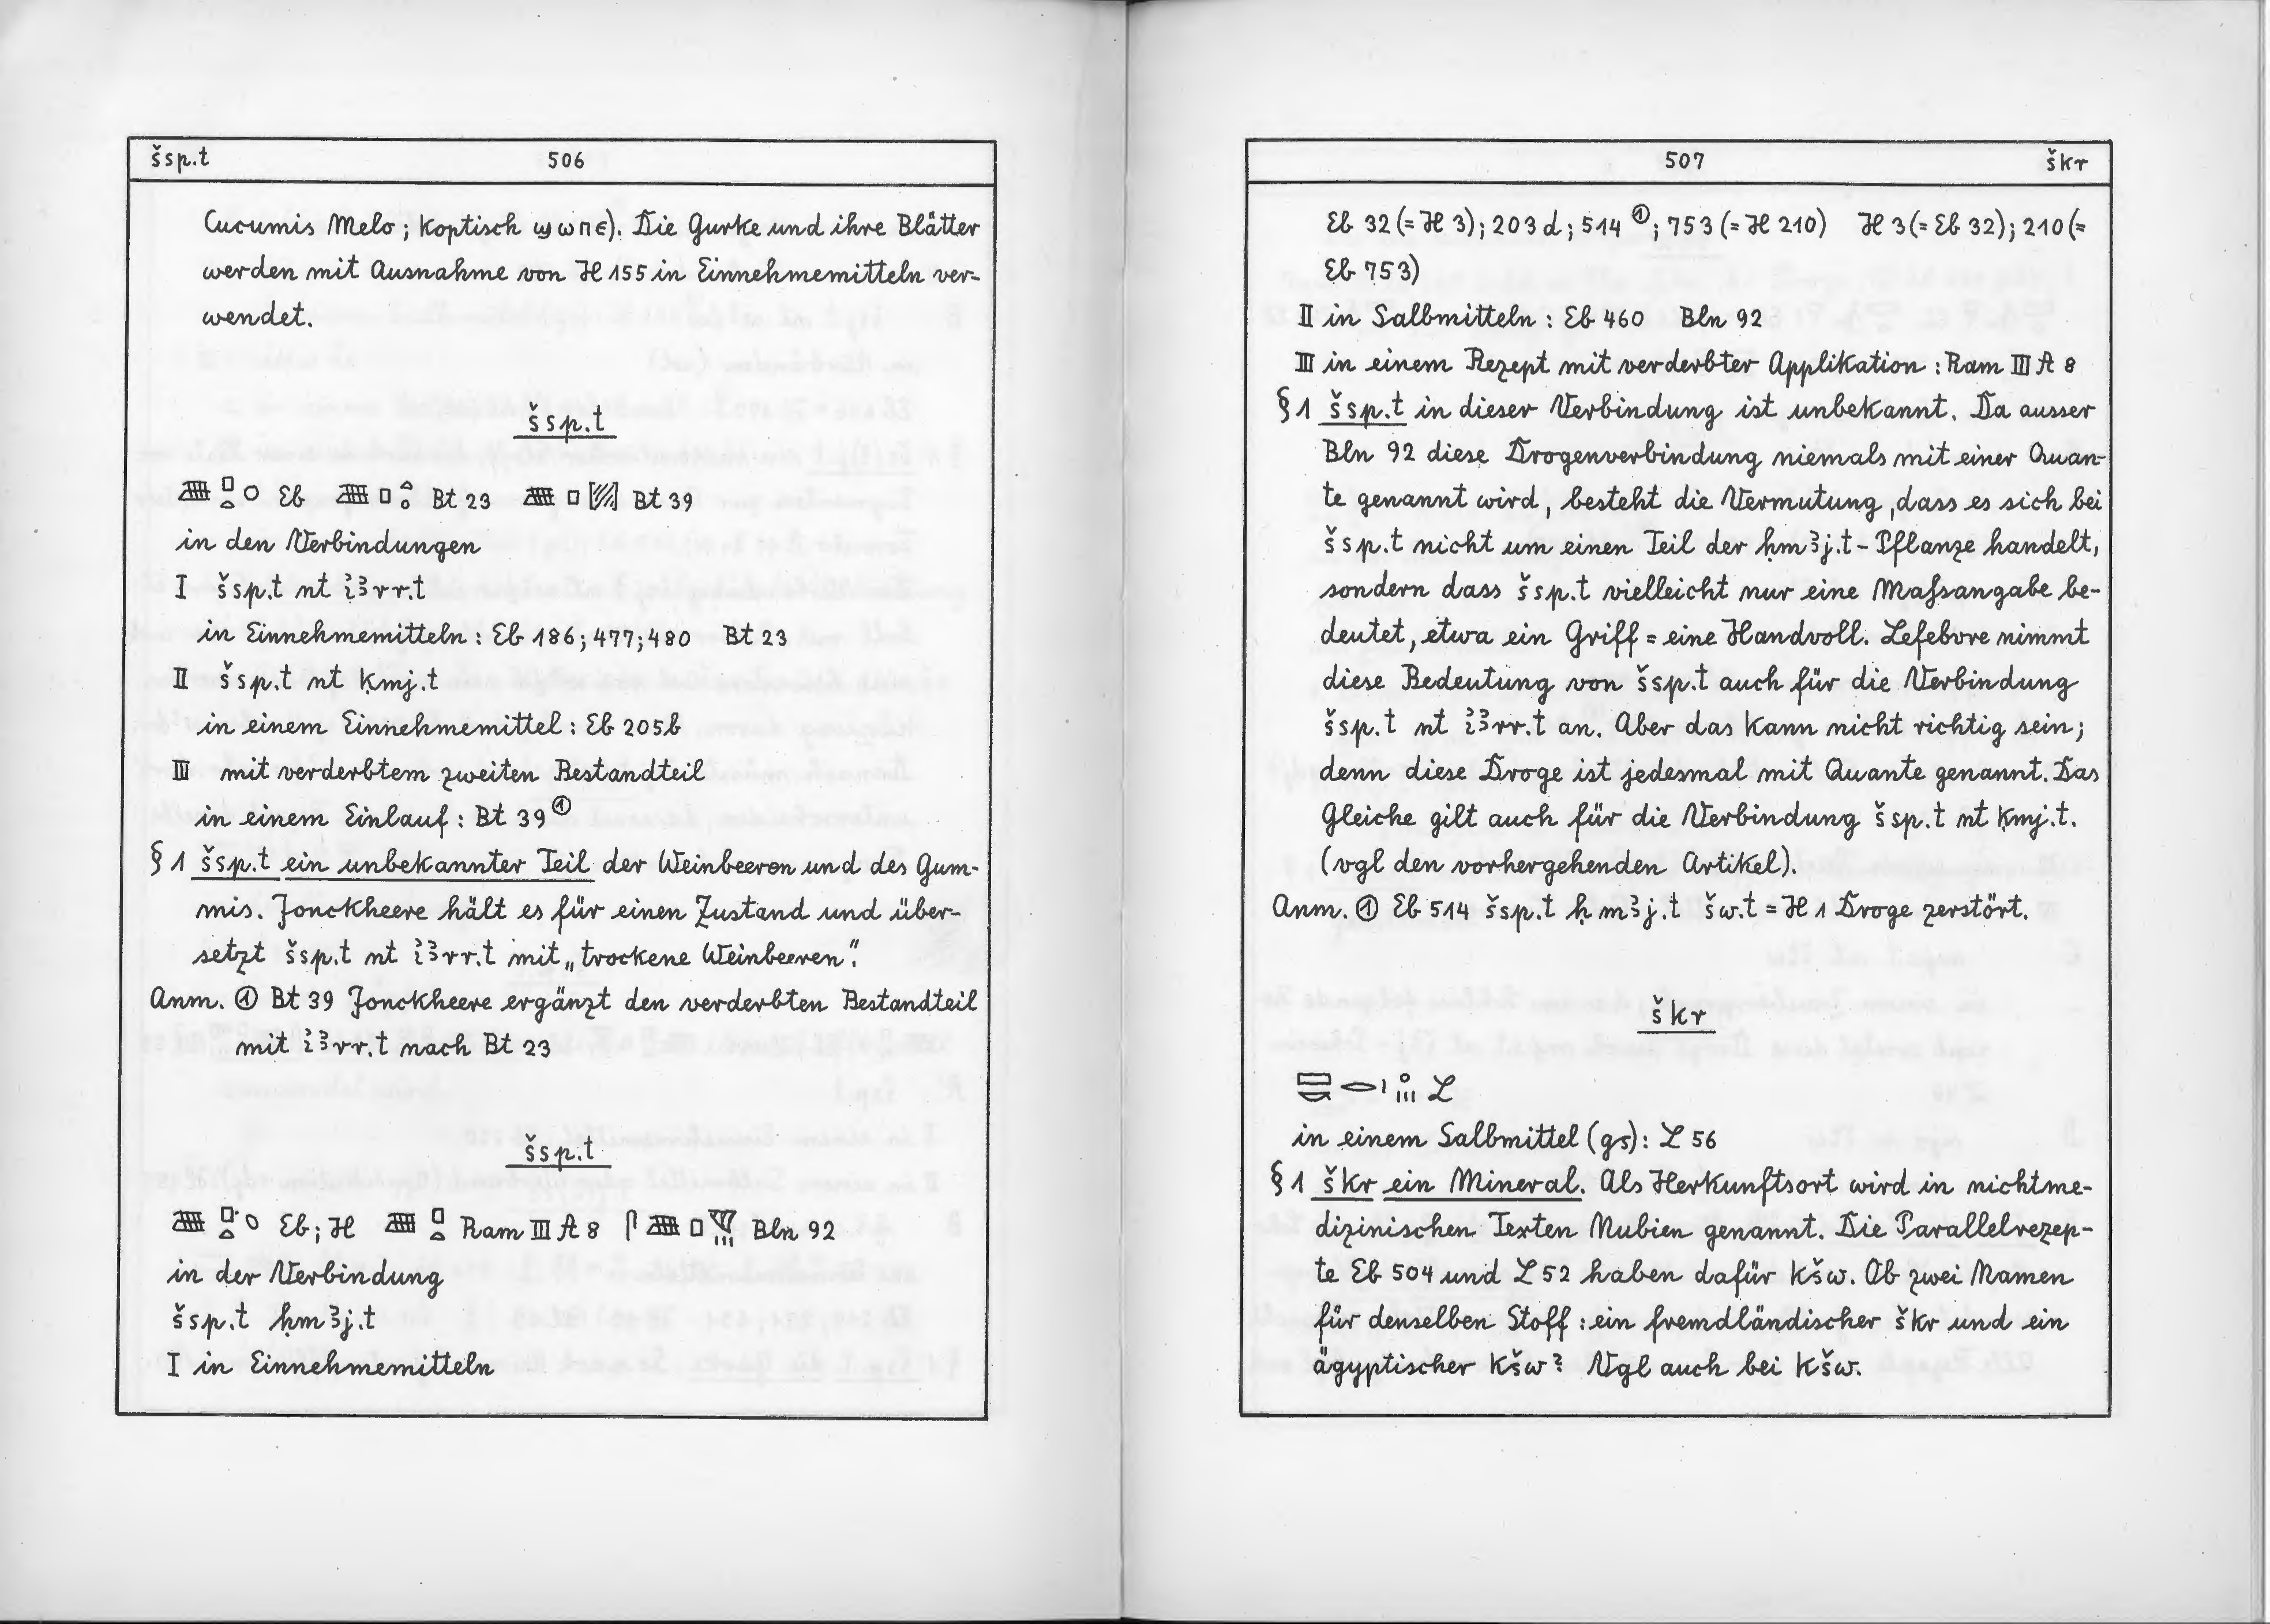 šsp.t 506
Cucumis Melo; koptisch ϣⲱⲡⲉ). Die Gurke und ihre Blätter
werden mit Ausnahme von H 155 in Einnehmemitteln ver-
wendet.
šsp.t
Eb Bt 23 Bt 39
in den Verbindungen
I šsp.t nt i҆ꜣrr.t
in Einnehmemitteln: Eb 186; 477; 480 Bt 23
II šsp.t nt ḳmj.t
in einem Einnehmemittel: Eb 205b
III mit verderbtem zweiten Bestandteil
in einem Einlauf: Bt 39 ①
§ 1 šsp.t ein unbekannter Teil der Weinbeeren und des Gum-
mis. Jonckheere hält es für einen Zustand und über-
setzt šsp.t nt i҆ꜣrr.t mit „trockene Weinbeeren".
Anm. ① Bt 39 Jonckheere ergänzt den verderbten Bestandteil
mit i҆ꜣrr.t nach Bt 23
šsp.t
Eb; H Ram III A 8 Bln 92
in der Verbindung
šsp.t ḥmꜣj.t
I in Einnehmemitteln
507 škr
Eb 32 (= H 3); 203 d; 514 ①; 753 (= H 210) H 3 (= Eb 32); 210 (=
Eb 753)
II in Salbmitteln: Eb 460 Bln 92
III in einem Rezept mit verderbter Applikation: Ram III A 8
§ 1 šsp.t in dieser Verbindung ist unbekannt. Da ausser
Bln 92 diese Drogenverbindung niemals mit einer Quan-
te genannt wird, besteht die Vermutung, dass es sich bei
šsp.t nicht um einen Teil der ḥmꜣj.t-Pflanze handelt,
sondern dass šsp.t vielleicht nur eine Maſsangabe be-
deutet, etwa ein Griff = eine Handvoll. Lefebvre nimmt
diese Bedeutung von šsp.t auch für die Verbindung
šsp.t nt i҆ꜣrr.t an. Aber das kann nicht richtig sein;
denn diese Droge ist jedesmal mit Quante genannt. Das
Gleiche gilt auch für die Verbindung šsp.t nt ḳmj.t.
(vgl den vorhergehenden Artikel).
Anm. ① Eb 514 šsp.t ḥmꜣj.t šw.t = H 1 Droge zerstört.
škr
L
in einem Salbmittel (gs): L 56
§ 1 škr ein Mineral. Als Herkunftsort wird in nichtme-
dizinischen Texten Nubien genannt. Die Parallelrezep-
te Eb 504 und L 52 haben dafür kšw. Ob zwei Namen
für denselben Stoff: ein fremdländischer škr und ein
ägyptischer kšw? Vgl auch bei kšw.